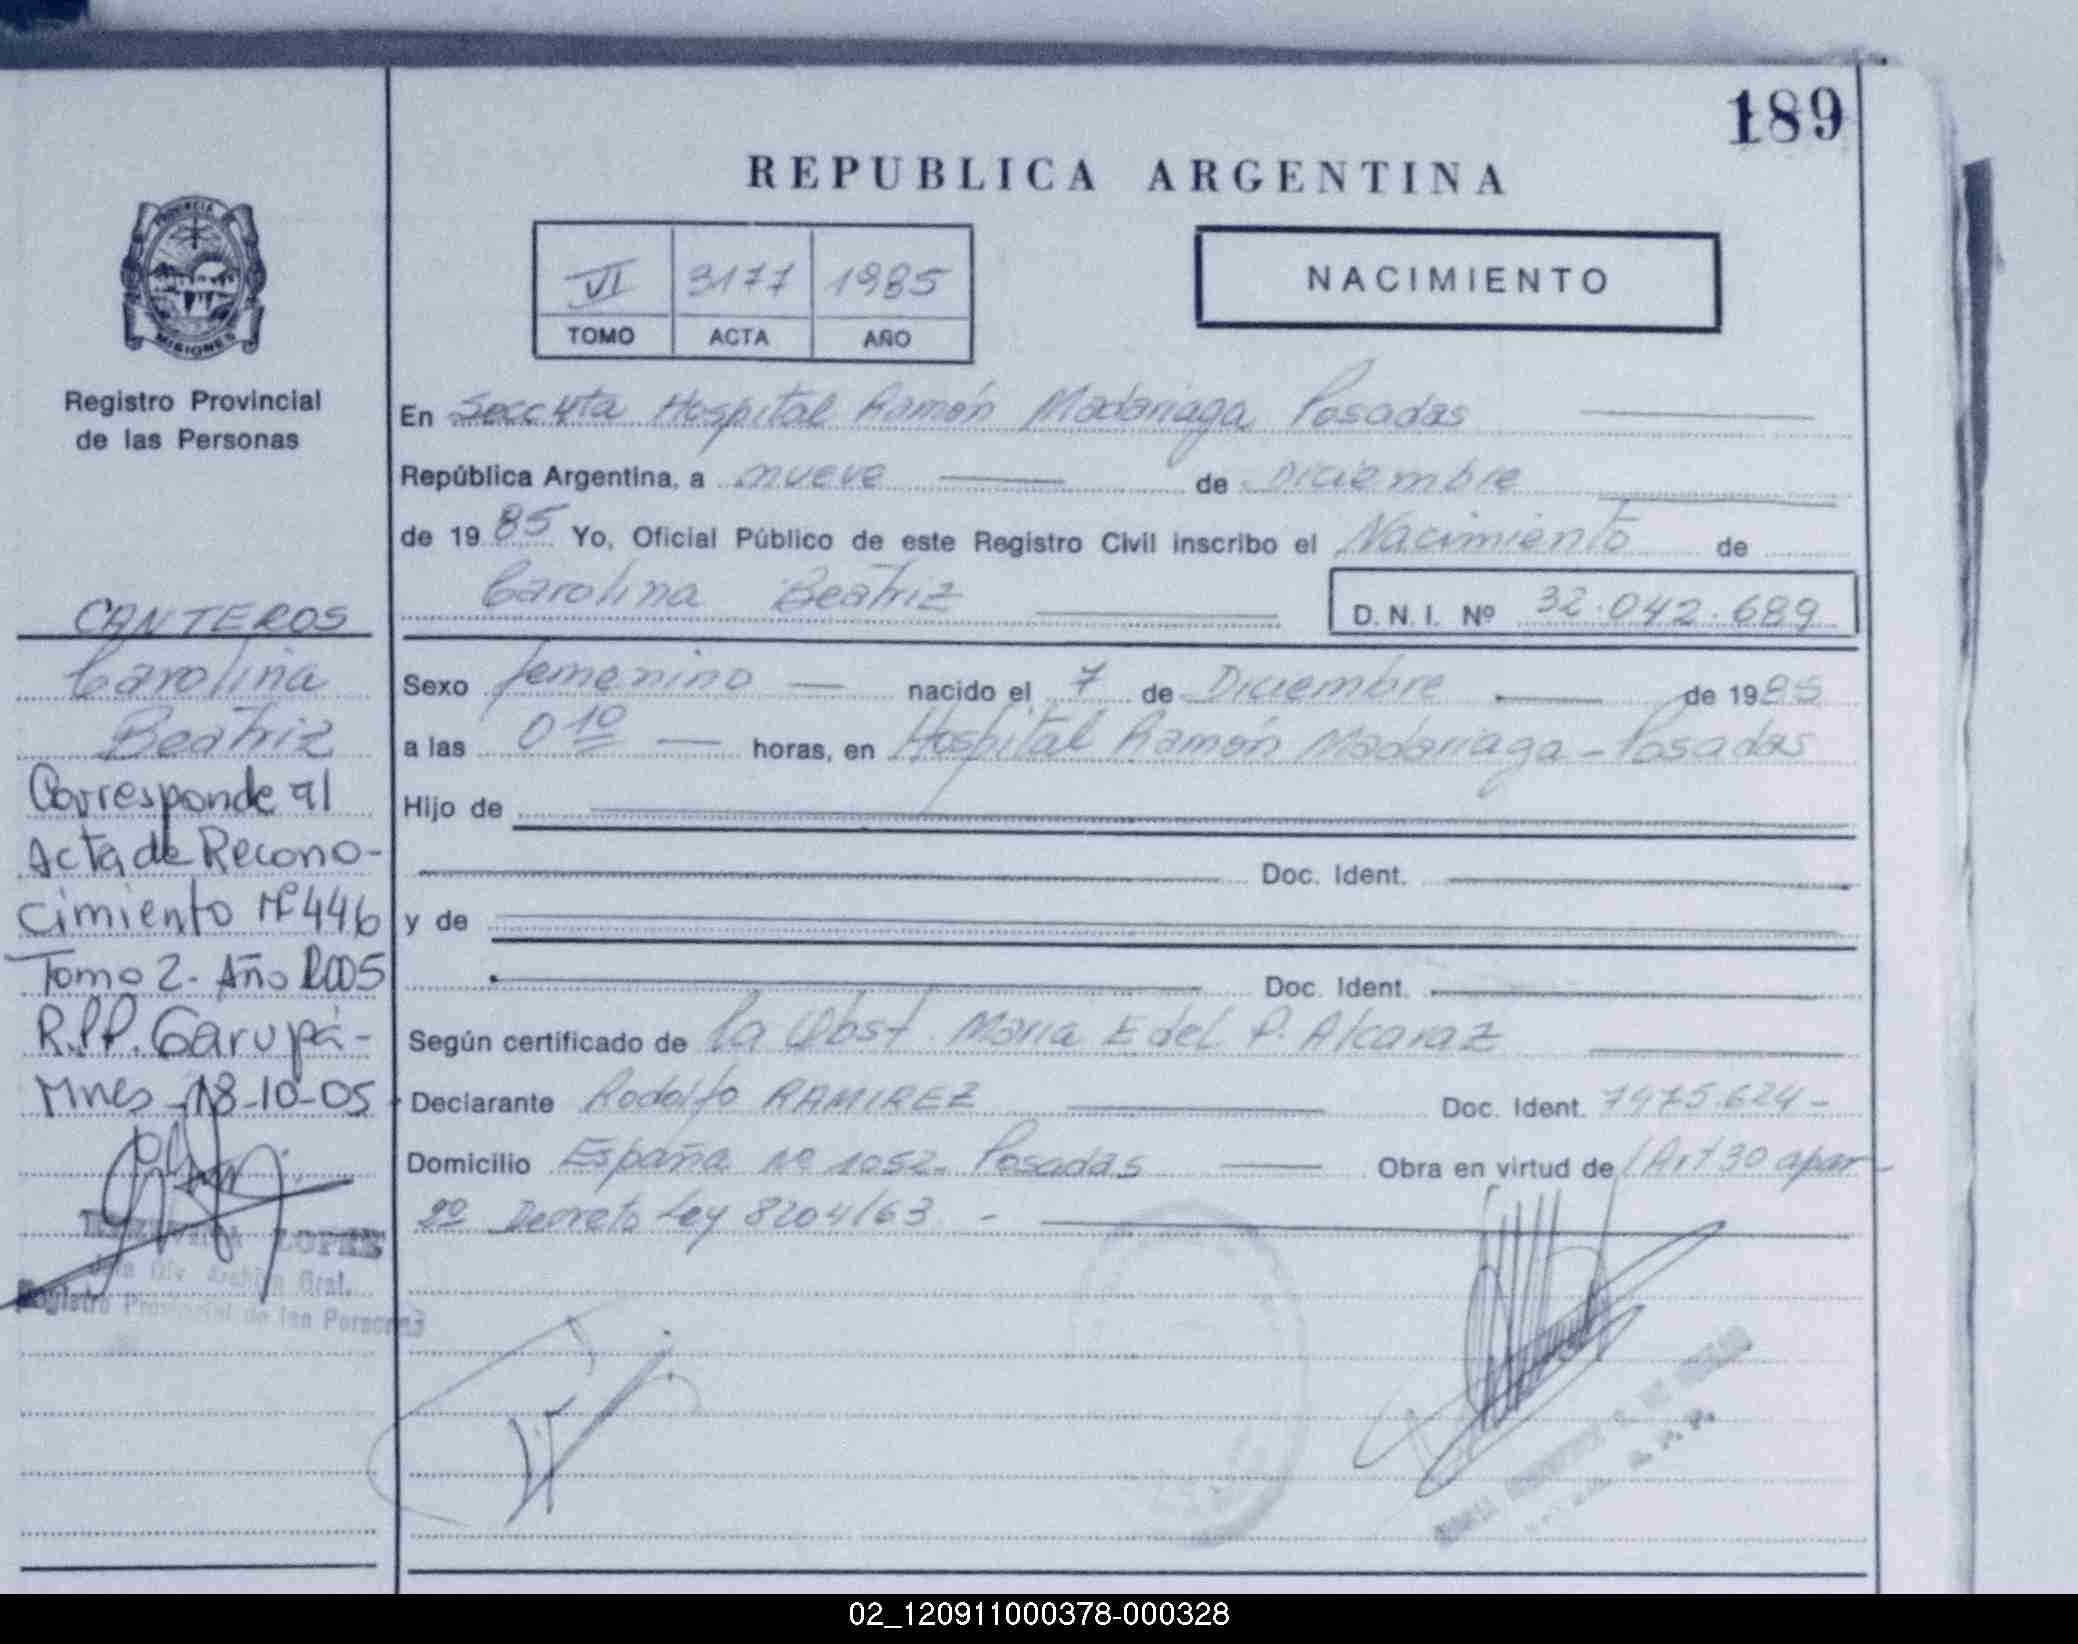 189
REPUBLICA ARGENTINA
VI 3177 1985
TOMO ACTA AÑO
NACIMIENTO
PROVINCIA
MISIONES
Registro Provincial
de las Personas
CANTEROS
Carolina
Beatriz
Corresponde al
Acta de Recono-
cimiento Nº 446
Tomo 2- Año 2005
R.P.P. Garupá-
Mnes - 18-10-05
LOPEZ
Div. Archivo Gral.
Registro Provincial de las Personas
En Secc 4ta Hospital Ramón Madariaga Posadas
República Argentina, a nueve de Diciembre
de 1985 Yo, Oficial Público de este Registro Civil inscribo el Nacimiento de
Carolina Beatriz D.N.I. Nº 32.042.689
Sexo femenino — nacido el 7 de Diciembre de 1985
a las 0 10 — horas, en Hospital Ramón Madariaga - Posadas
Hijo de
Doc. Ident.
y de
Doc. Ident.
Según certificado de la Obst. Maria Edel P. Alcaraz
Declarante Rodolfo RAMIREZ Doc. Ident. 7475.624-
Domicilio España Nº 1052- Posadas Obra en virtud de Art 30 apar
2º Decreto Ley 8204/63 -
02_120911000378-000328